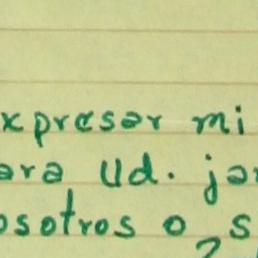 xpresar mi
ara Ud. jar
osotros o, s